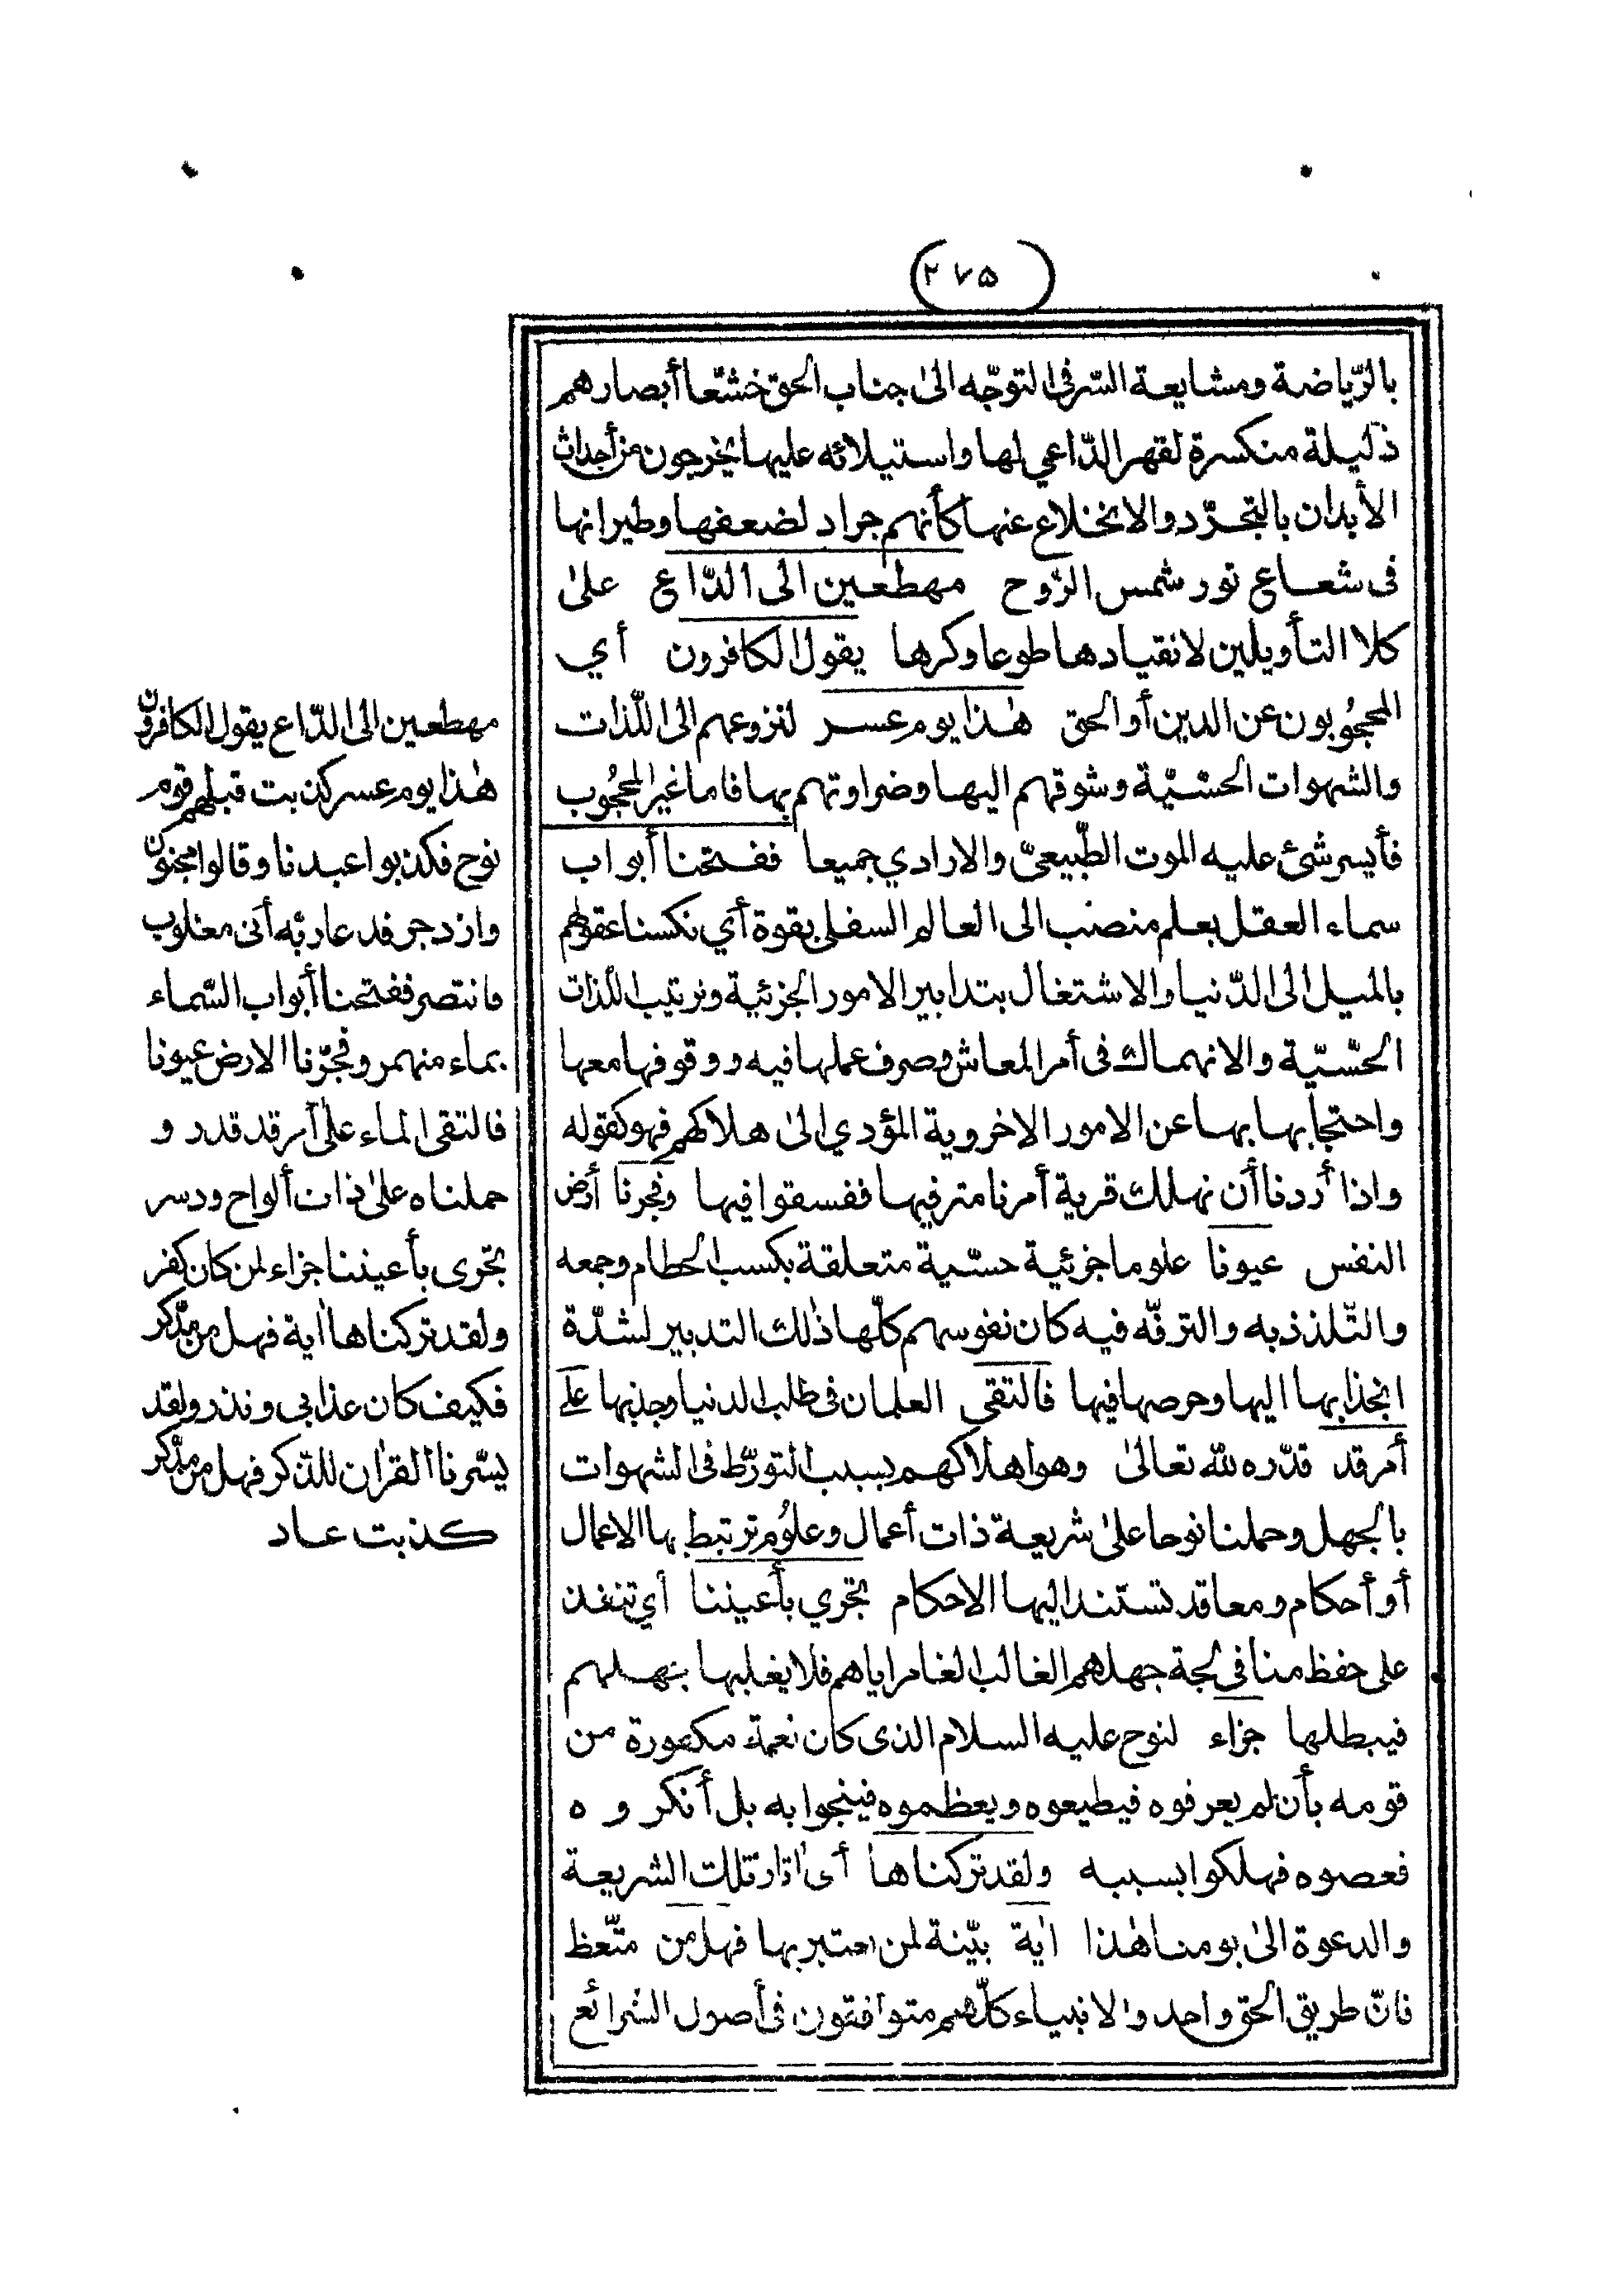 (٢٧٥)
بالرّياضة ومشايعة السّر في التوجّه الىٰ جناب الحق خشّعا أبصارهم
ذليلة منكسرة لقهر الدّاعي لها واستيلائه عليها يخرجون من أجداث
الأبدان بالتجرّد والانخلاع عنها كأنهم جراد لضعفها وطيرانها
فى شعاع نور شمس الرّوح مهطعين الى الدّاع علىٰ
كلا التأويلين لانقيادها طوعا وكرها يقول الكافرون أي
المحجُوبون عن الدين أو الحق هٰذا يوم عسر لنزوعهم الى اللّذات
والشهوات الحسّيّة وشوقهم اليها وضراوتهم بها فاما غير المحجُوب
فأيسر شئ عليه الموت الطّبيعىّ والارادي جميعا ففتحنا أبواب
سماء العقل بعلم منصب الى العالم السفلى بقوة أي نكسنا عقولهم
بالميل الى الدّنيا والاشتغال بتدابير الامور الجزئية وترتيب اللّذات
الحسّيّة والانهماك فى أمر المعاش وصرف عملها فيه ووقوفها معها
واحتجابها بها عن الامور الاخروية المؤدي الىٰ هلاكهم فهو كقوله
واذا أردنا أن نهلك قرية أمرنا مترفيها ففسقوا فيها وفجرنا أرض
النفس عيونا علوما جزئية حسّية متعلقة بكسب الحطام وجمعه
والتّلذذ به والترفّه فيه كان نفوسهم كلّها ذٰلك التدبير لشدّة
انجذابها اليها وحرصها فيها فالتقى العلمان فى طلب الدنيا وجذبها علىٰ
أمر قد قدّره للّٰه تعالىٰ وهو اهلاكهم بسبب التورّط فى الشهوات
بالجهل وحملنا نوحا علىٰ شريعة ذات أعمال وعلوُم ترتبط بها الاعمال
أو أحكام ومعاقد تستند اليها الاحكام تجري بأعيننا أي تنفذ
على حفظ منا فى لجة جهلهم الغالب الغامر اياهم فلا يغلبها بجهلهم
فيبطلها جزاء لنوح عليه السلام الذى كان نعمة مكفورة من
قومه بأن لم يعرفوه فيطيعوه ويعظموه فينجوا به بل أنكروه
فعصوه فهلكوا بسببه ولقد تركناها أى اٰثار تلك الشريعة
والدعوة الىٰ يومنا هٰذا اٰية بيّنة لمن اعتبر بها فهل من متّعظ
فانّ طريق الحق واحد والانبياء كلّهم متوافقون فى أصول الشرائع
مهطعين الى الدّاع يقول الكافرون
هٰذا يوم عسر كذبت قبلهم قوم
نوح فكذبوا عبدنا وقالوا مجنون
وازدجر فدعا ربّه أنى مغلوب
فانتصر ففتحنا أبواب السّماء
بماء منهمر وفجّرنا الارض عيونا
فالتقى الماء علىٰ أمر قد قدر و
حملناه علىٰ ذات ألواح ودسر
تجرى بأعيننا جزاء لمن كان كفر
ولقد تركناها اٰية فهل من مدّكر
فكيف كان عذابي ونذر ولقد
يسّرنا القراٰن للذّكر فهل من مدّكر
كذبت عاد